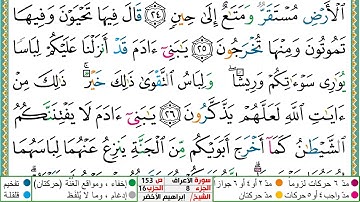 ٱلْأَرْضِ مُسْتَقَرٌّ وَمَتَٰعٌ إِلَىٰ حِينٍ ٢٤ قَالَ فِيهَا تَحْيَوْنَ وَفِيهَا
تَمُوتُونَ وَمِنْهَا تُخْرَجُونَ ٢٥ يَٰبَنِىٓ ءَادَمَ قَدْ أَنزَلْنَا عَلَيْكُمْ لِبَاسًا
يُوَٰرِى سَوْءَٰتِكُمْ وَرِيشًا ۖ وَلِبَاسُ ٱلتَّقْوَىٰ ذَٰلِكَ خَيْرٌ ۚ ذَٰلِكَ مِنْ
ءَايَٰتِ ٱللَّهِ لَعَلَّهُمْ يَذَّكَّرُونَ ٢٦ يَٰبَنِىٓ ءَادَمَ لَا يَفْتِنَنَّكُمُ
ٱلشَّيْطَٰنُ كَمَآ أَخْرَجَ أَبَوَيْكُم مِّنَ ٱلْجَنَّةِ يَنزِعُ عَنْهُمَا لِبَاسَهُمَا
مدّ ٦ حركات لزوماً مدّ ٢ أو ٤ أو ٦ جوازاً
مدّ واجب ٤ أو ٥ حركات مدّ حركتان
سورة الأعراف ص 153
الجزء 8 الحزب 16
الشيخ/ ابراهيم الأخضر
إخفاء، ومواقع الغُنَّة (حركتان) تفخيم
إدغام، وما لا يُلفَظ قلقلة